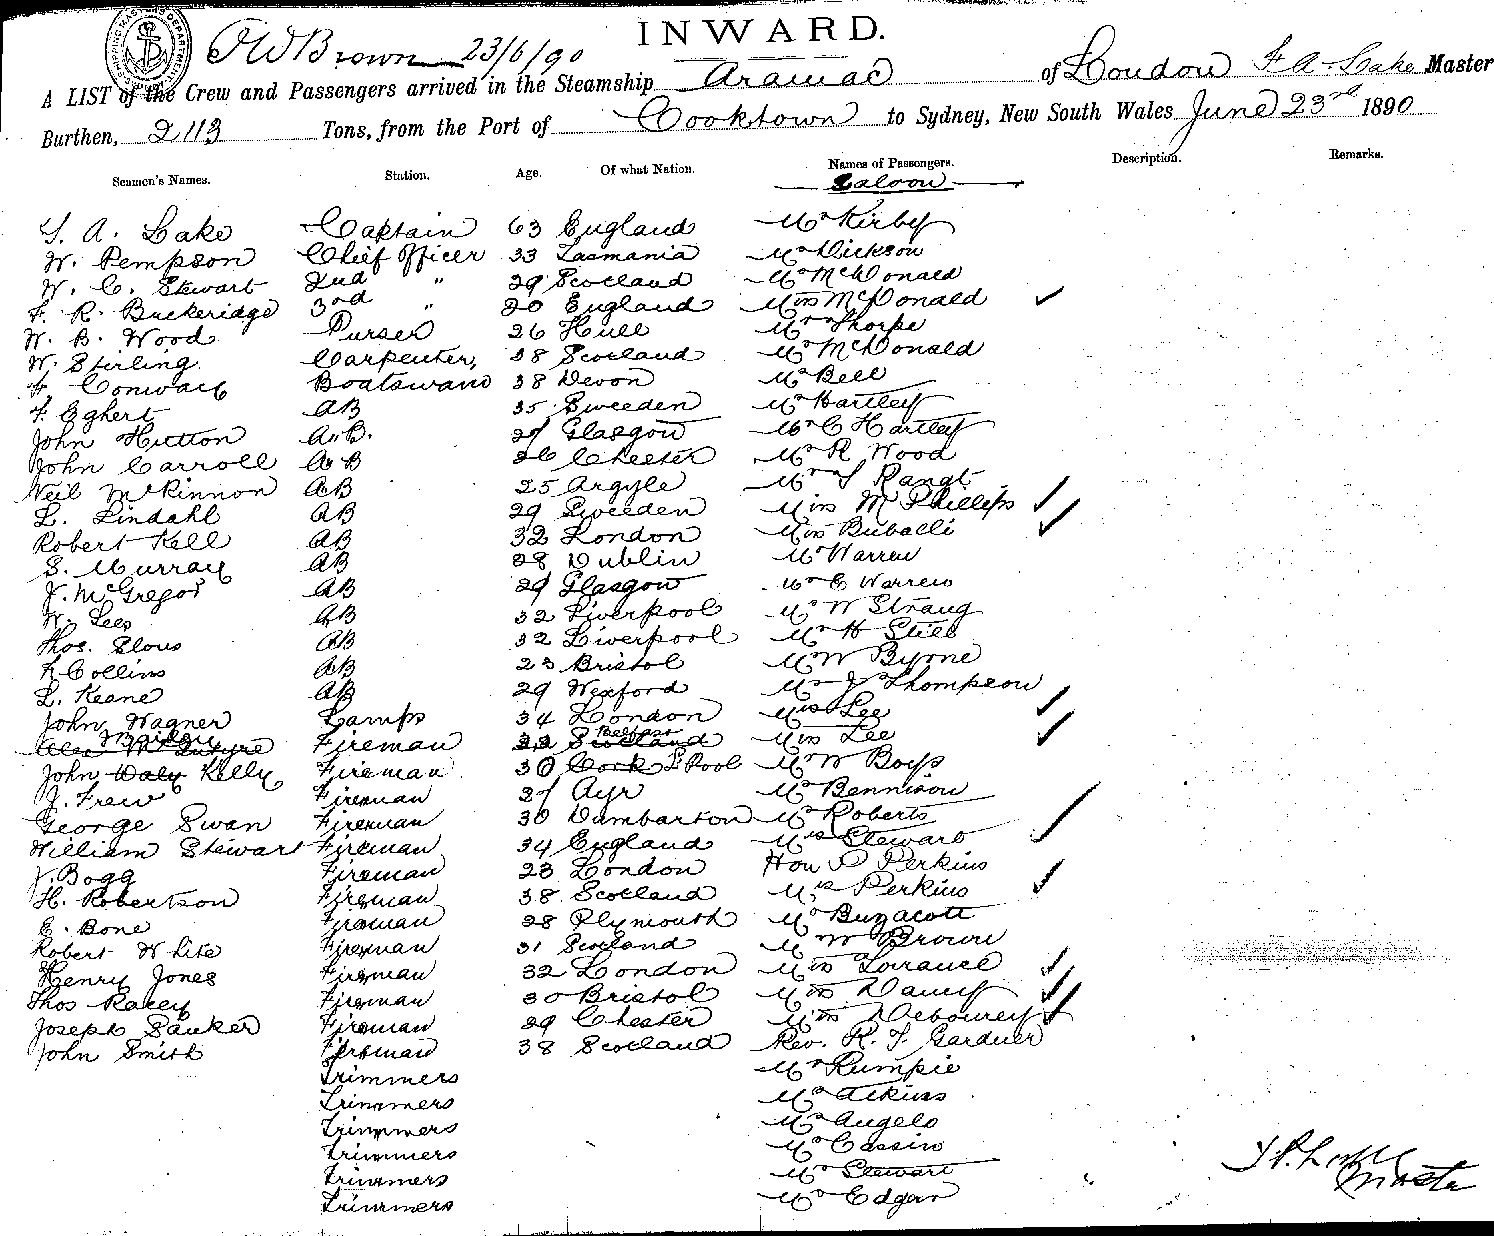 INWARD.
J W Brown 23/6/90
A LIST of the Crew and Passengers arrived in the Steamship Aramac of London F A Lake Master
Burthen, 2113 Tons, from the Port of Cooktown to Sydney, New South Wales June 23rd 1890
Seamen's Names. Station. Age. Of what Nation. Names of Passengers. Description. Remarks.
Saloon
F. A. Lake Captain 63 England Mr Kirby
W. Pempson Chief Officer 33 Tasmania Mr Dickson
W. C. Stewart 2nd " 29 Scotland Mr McDonald
F. R. Buckeridge 3rd " 20 England Miss McDonald
W. B. Wood Purser 26 Hull Mrs Thorpe
W. Stirling Carpenter, 38 Scotland Mr McDonald
F. Conway Boatswand 38 Devon Mr Bell
F. Eghert AB 35 Sweeden Mr Hartley
John Hutton A.B. 27 Glasgow Mr C Hartley
John Carroll AB 26 Chester Mr R Wood
Neil McKinnon AB 25 Argyle Mr Rangt
L. Lindahl AB 29 Sweeden Miss M Phillips
Robert Kell AB 32 London Miss Buballi
S. Murray AB 28 Dublin Mr Warren
J. McGregor AB 29 Glasgow Mr C Warren
W. Lees AB 32 Liverpool Mr W Strang
Thos. Slous AB 32 Liverpool Mr H Still
R Collins AB 23 Bristol Mr W Byrne
L. Keane AB 29 Wexford Mr J Thompson
John Wagner Lamps 34 London Mrs Lee
Alex McIntyre Fireman 22 Scotland Belfast Miss Lee
John Daly Kelly Fireman 30 Cork L'Pool Mr W Boys
J. Frew Fireman 27 Ayr Mr Bennison
George Swan Fireman 30 Dumbarton Mr Roberts
William Stewart Fireman 34 England Mrs Stewart
J. Bogg Fireman 23 London Hon P Perkins
H. Robertson Fireman 38 Scotland Mrs Perkins
E. Bone Fireman 28 Plymouth Mr Buzacott
Robert White Fireman 31 Scotland Mr W Brown
Henry Jones Fireman 32 London Miss Lorrance
Thos Racey Fireman 30 Bristol Miss Dancy
Joseph Sanker Fireman 29 Chester Miss Debourcy
John Smith Fireman 38 Scotland Rev. R. T. Gardner
Trimmers Mr Rumpie
Trimmers Mr Atkins
Trimmers Mr Angelo
Trimmers Mr Cassin
Trimmers Mr Stewart
Trimmers Mr Edgar
Master